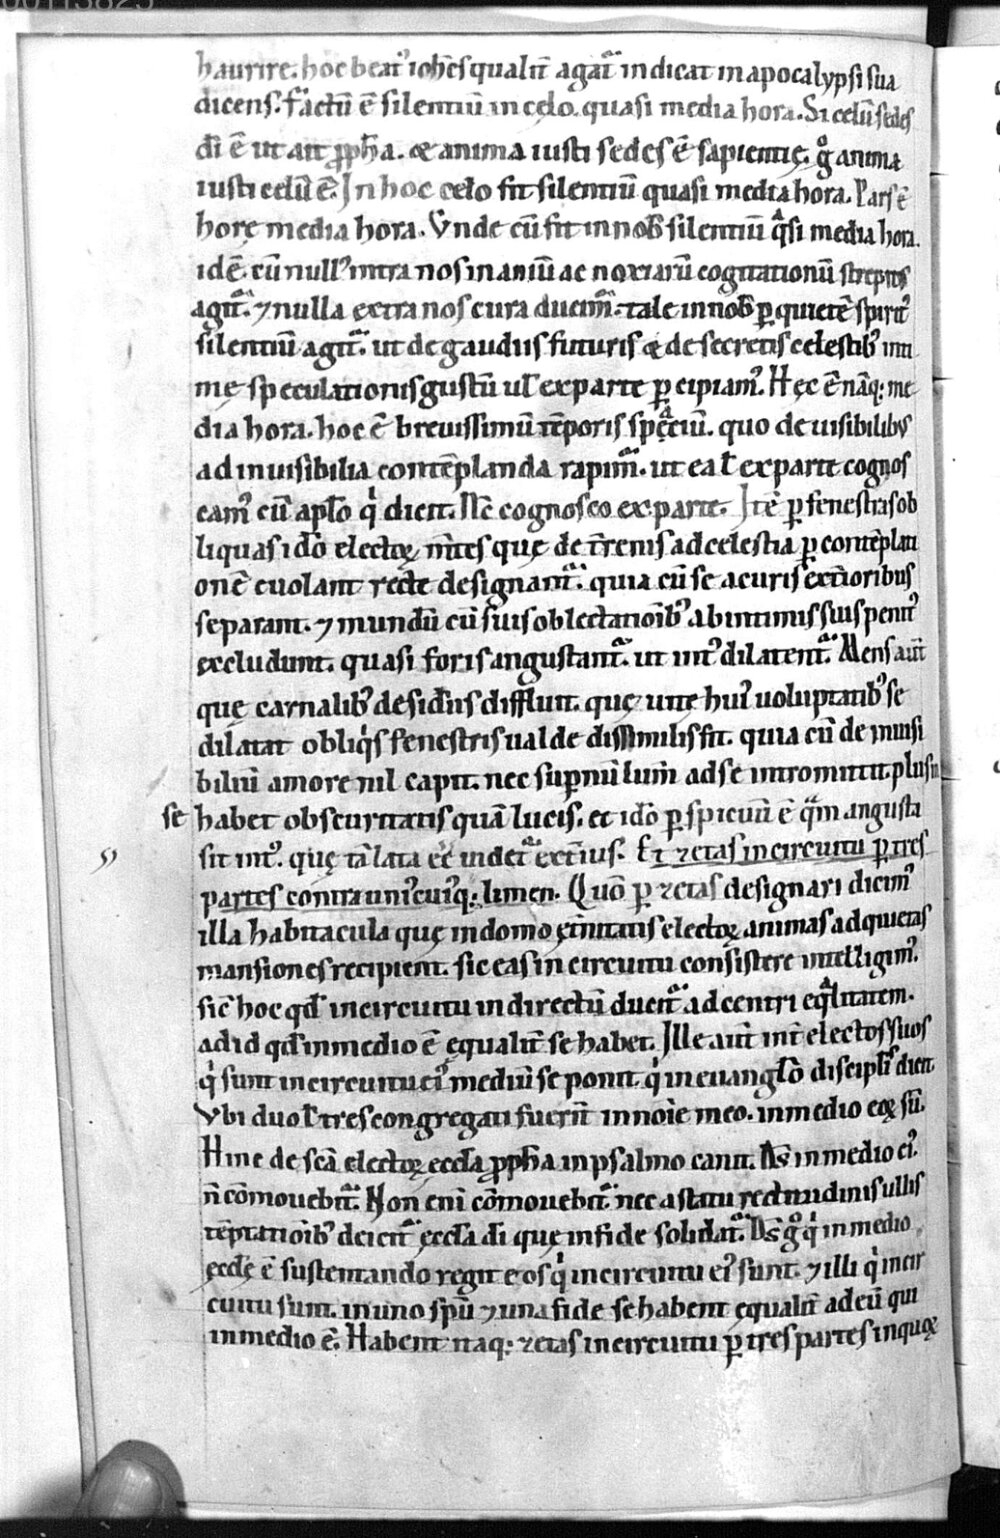 00113825
haurire. hoc beat᷒ ioh̅es qualit̅ agat᷑ indicat in apocalypsi sua
dicens. factū ē silentiū in cęlo. quasi media hora. Si celū sedes
dī ē ut ait ꝓph̅a. & anima iusti sedes ē sapientię. gͦ anima
iusti celū ē. In hoc celo fit silentiū quasi media hora. Pars ē
horę media hora. Vnde cū fit in nob̅ silentiū qͣsi media hora.
idē. cū null᷒ intra nos inaniū ac noxiarū cogitationū strepitus
agit᷑. ⁊ nulla extra nos cura ducim᷑. tale in nob̅ ꝑ quietē spirit᷒
silentiū agit᷑. ut de gaudiis futuris & de secretis celestib᷒ inti
mę speculationis gustū ul̅ ex parte ꝑcipiam᷒. Hęc ē nāq; me
dia hora. hoc ē breuissimū tēporis spaciū. quo de uisibilibus
ad inuisibilia contēplanda rapim᷑. ut ea ł ex parte cognos
cam᷒ cū apl̅o qͥ dicit. Nc̅ cognosco ex parte. Itē ꝑ fenestras ob
liquas ido̅ electoꝝ m̅tes quę de t̅renis ad celestia ꝑ contēplati
onē euolant recte designant᷑. quia cū se a curis ext̅ioribus
separant. ⁊ mundū cū suis oblectationib᷒ ab intimis suis penit᷒
excludunt. quasi foris angustant᷑. ut int᷒ dilatent᷑. Mens aut̅
quę carnalib᷒ desid̅iis diffluit. quę uitę hui᷒ uoluptatib᷒ se
dilatat obliqͥs fenestris ualde dissimilis fit. quia cū de inuisi
biliū amore nil capit. nec sup̅nū lum̅ ad se intromittit. plus in
se habet obscuritatis quā lucis. et ido̅ ꝑspicuū ē qͣm angusta
sit int᷒. quę tā lata ee̅ uidet᷑ ext̅ius. Et zetas in circuitu ꝑ tres
partes contra uni᷒cui᷒q; limen. Quō ꝑ zetas designari dicim᷒
illa habitacula quę in domo ęt̅nitatis electoꝝ animas ad quietas
mansiones recipient. sic eas in circuitu consistere intelligim᷒.
sic̅ hoc qd̅ in circuitu in directū ducit᷑ ad centri eqͣlitatem.
ad id qd̅ in medio ē ęqualit̅ se habet. Ille aut̅ int̅ electos suos
qͥ sunt in circuitu ei᷒ mediū se ponit. qͥ in euangl̅o discipl̅is dicit.
Vbi duo ł tres congregati fuerint̅ in noīe meo. in medio eoꝝ sū.
Hinc de sc̅a electoꝝ eccl̅a ꝓph̅a in psalmo canit. Ds̅ in medio ei᷒.
n̅ cōmouebit᷑. Non enī cōmouebit᷑. nec a statu rectitudinis ullis
tēptationib᷒ deicit᷑ ęccl̅a dī quę in fide solidat᷑. Ds̅ gͦ qͥ in medio
ęccl̅ę ē sustentando regit eos qͥ in circuitu ei᷒ sunt. ⁊ illi qͥ in cir
cuitu sunt. in uno spū ⁊ una fide se habent ęqualit̅ ad eū qui
in medio ē. Habent itaq; zetas in circuitu ꝑ tres partes in quoꝝ